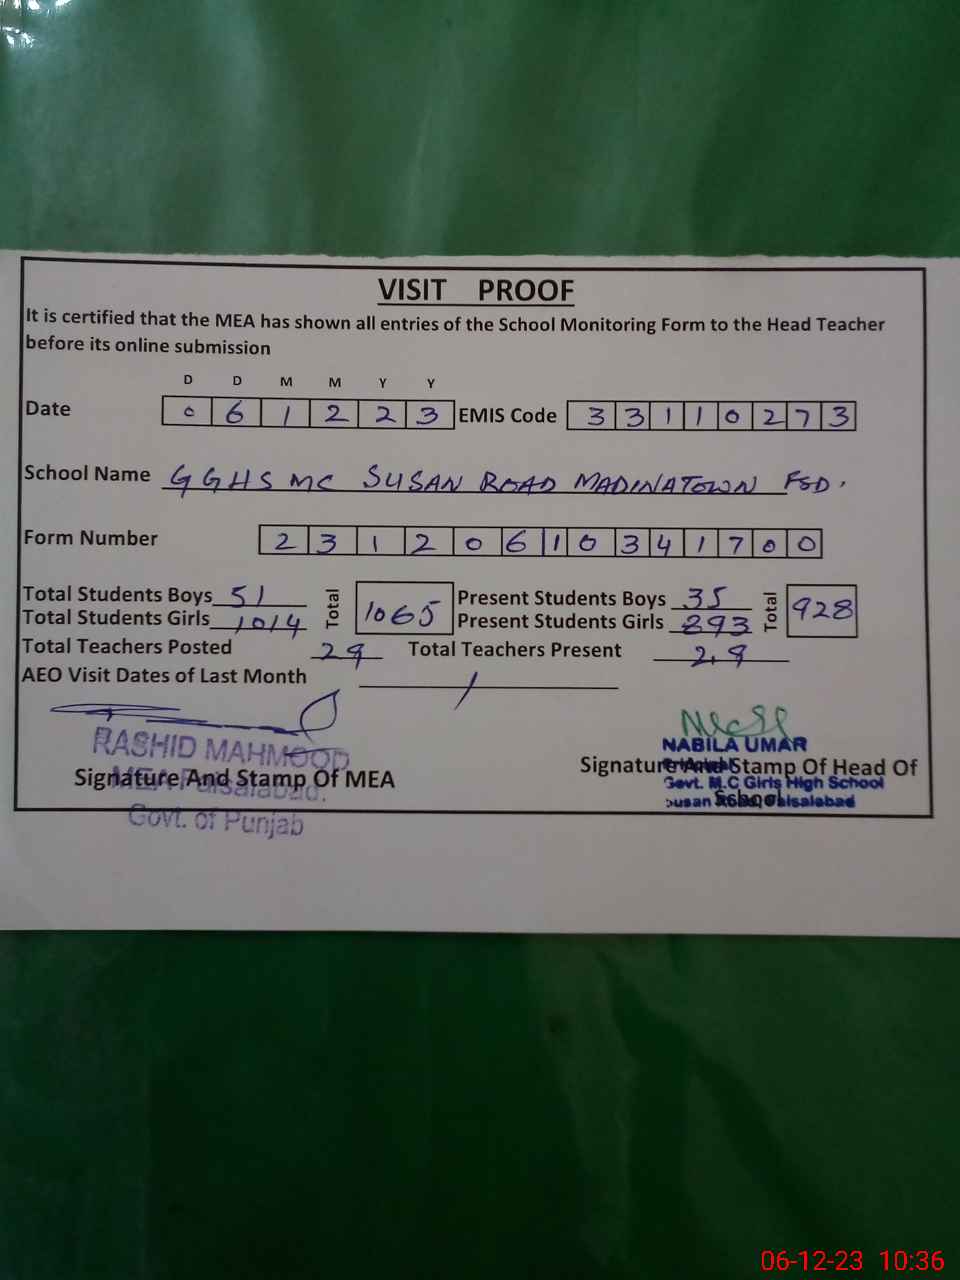 VISIT PROOF
It is certified that the MEA has shown all entries of the School Monitoring Form to the Head Teacher
before its online submission
D D M M Y Y
Date 0 6 1 2 2 3 EMIS Code 3 3 1 1 0 2 7 3
School Name GGHS MC SUSAN ROAD MADINATOWN FSD.
Form Number 2 3 1 2 0 6 1 0 3 4 1 7 0 0
Total Students Boys 51 Total 1065 Present Students Boys 35 Total 928
Total Students Girls 1014 Present Students Girls 893
Total Teachers Posted 29 Total Teachers Present 29
AEO Visit Dates of Last Month /
RASHID MAHMOOD
MEA Faisalabad.
Govt. of Punjab
Signature And Stamp Of MEA
NABILA UMAR
Govt. M.C Girls High School
Susan Road, Faisalabad
Signature And Stamp Of Head Of
School
06-12-23 10:36